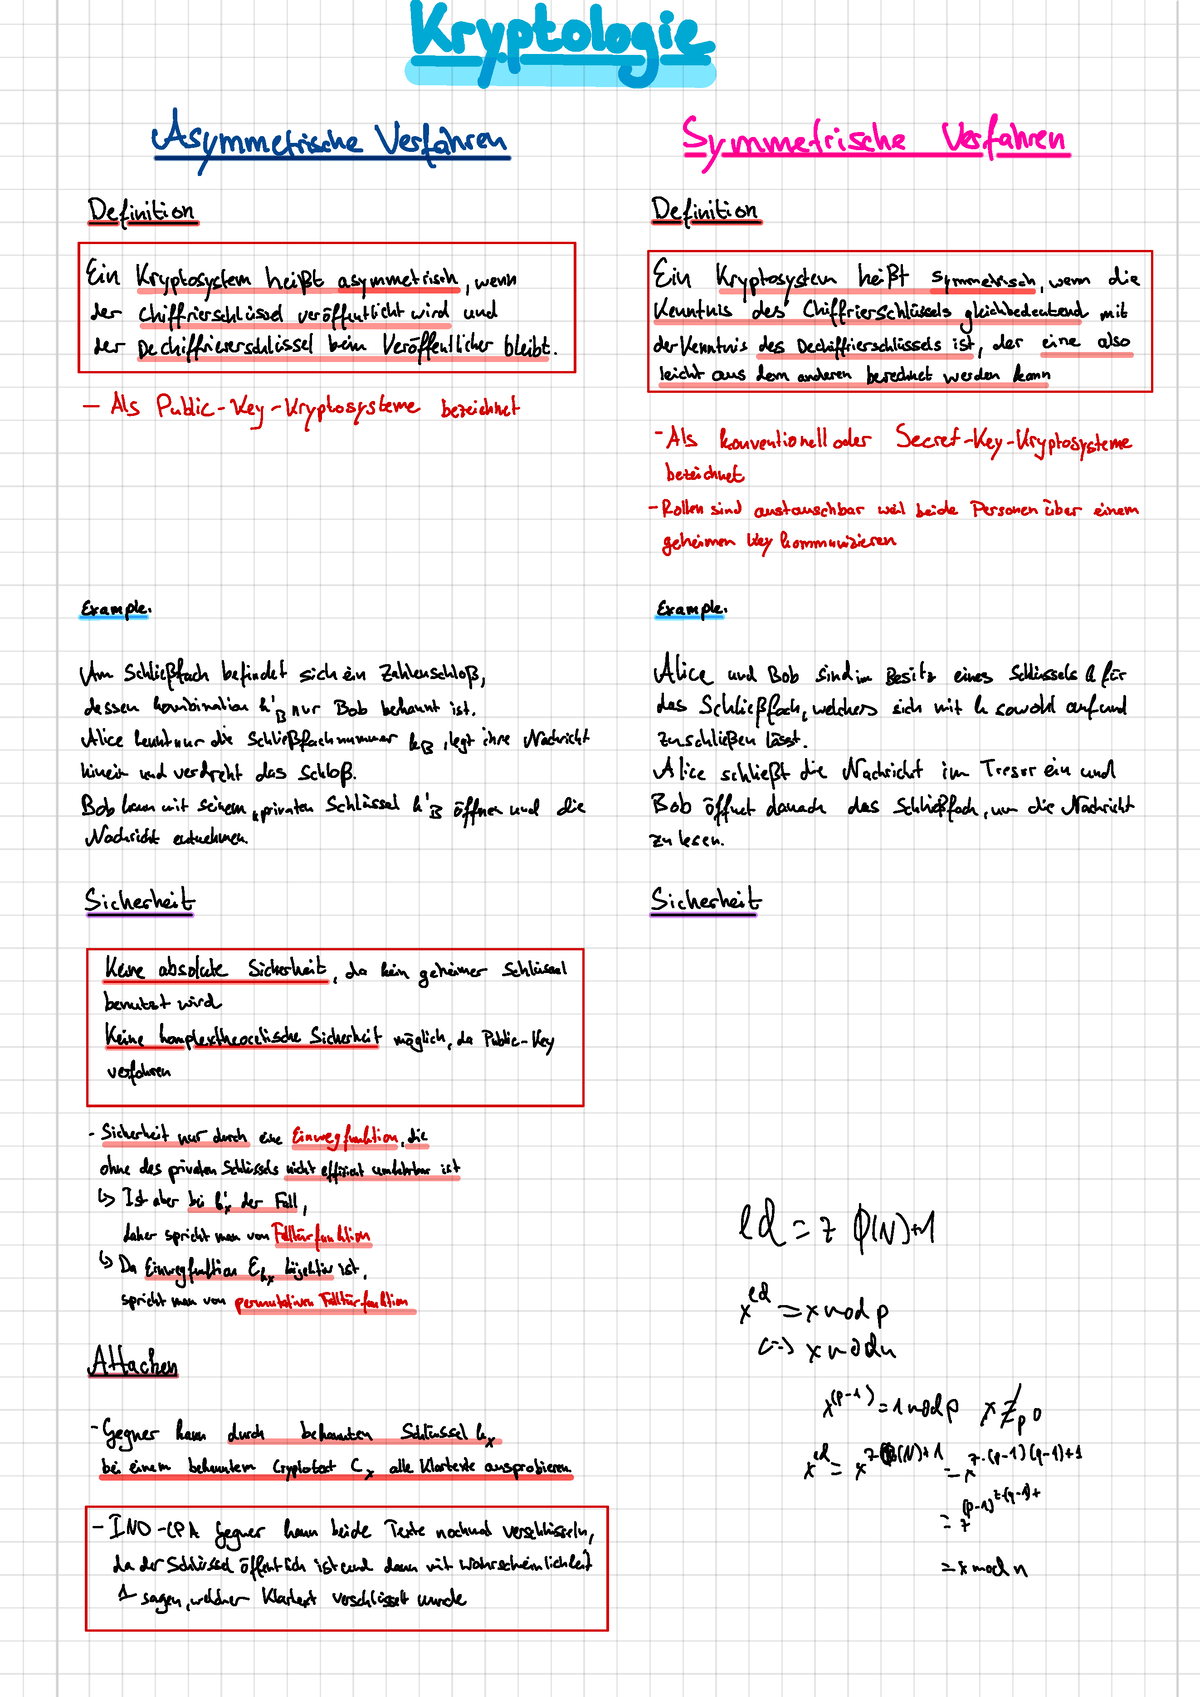 Kryptologie
Asymmetrische Verfahren
Definition
Ein Kryptosystem heißt asymmetrisch, wenn
der Chiffrierschlüssel veröffentlicht wird und
der Dechiffriererschlüssel beim Veröffentlicher bleibt.
- Als Public-Key-Kryptosysteme bezeichnet
Example.
Am Schließfach befindet sich ein Zahlenschloß,
dessen Kombination k'B nur Bob bekannt ist.
Alice kennt nur die Schließfachnummer kB, legt ihre Nachricht
hinein und verdreht das Schloß.
Bob kann mit seinem privaten Schlüssel k'B öffnen und die
Nachricht entnehmen.
Sicherheit
Keine absolute Sicherheit, da kein geheimer Schlüssel
benutzt wird
Keine komplextheoretische Sicherheit möglich, da Public-Key
verfahren
- Sicherheit nur durch eine Einwegfunktion, die
ohne des privaten Schlüssels nicht effizient umkehrbar ist
↳ Ist aber bei k'x der Fall,
daher spricht man von Falltürfunktion
↳ Da Einwegfunktion Ekx bijektiv ist,
spricht man von permutativen Falltürfunktion
Attacken
- Gegner kann durch bekannten Schlüssel kx
bei einem bekanntem Cryptotext Cx alle Klartexte ausprobieren
- IND-CPA Gegner kann beide Texte nochmal verschlüsseln,
da der Schlüssel öffentlich ist und dann mit Wahrscheinlichkeit
1 sagen, welcher Klartext verschlüsselt wurde
Symmetrische Verfahren
Definition
Ein Kryptosystem heißt symmetrisch, wenn die
Kenntnis des Chiffrierschlüssels gleichbedeutend mit
der Kenntnis des Dechiffrierschlüssels ist, der eine also
leicht aus dem anderen berechnet werden kann
- Als konventionell oder Secret-Key-Kryptosysteme
bezeichnet
- Rollen sind austauschbar weil beide Personen über einem
geheimen Key kommunizieren
Example.
Alice und Bob sind im Besitz eines Schlüssels k für
das Schließfach, welchers sich mit k sowohl auf und
zuschließen lässt.
Alice schließt die Nachricht im Tresor ein und
Bob öffnet danach das Schließfach, um die Nachricht
zu lesen.
Sicherheit
ed = z φ(N)+1
x^ed = x mod p
<=> x mod n
x^(p-1) = 1 mod p
x^ed = x^z·φ(N)+1 = x^z·(p-1)(q-1)+1
= x mod n